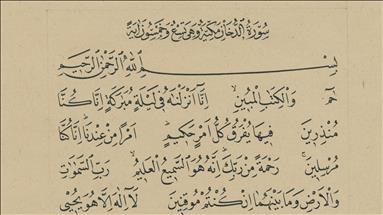 سورة الدخان مكية وهي تسع وخمسون اية
بسم الله الرحمن الرحيم
حم والكتب المبين انا انزلنه في ليلة مبركة انا كنا
منذرين فيها يفرق كل امر حكيم امرا من عندنا انا كنا
مرسلين رحمة من ربك انه هو السميع العليم رب السموات
والارض وما بينهما ان كنتم موقنين لا اله الا هو يحيى